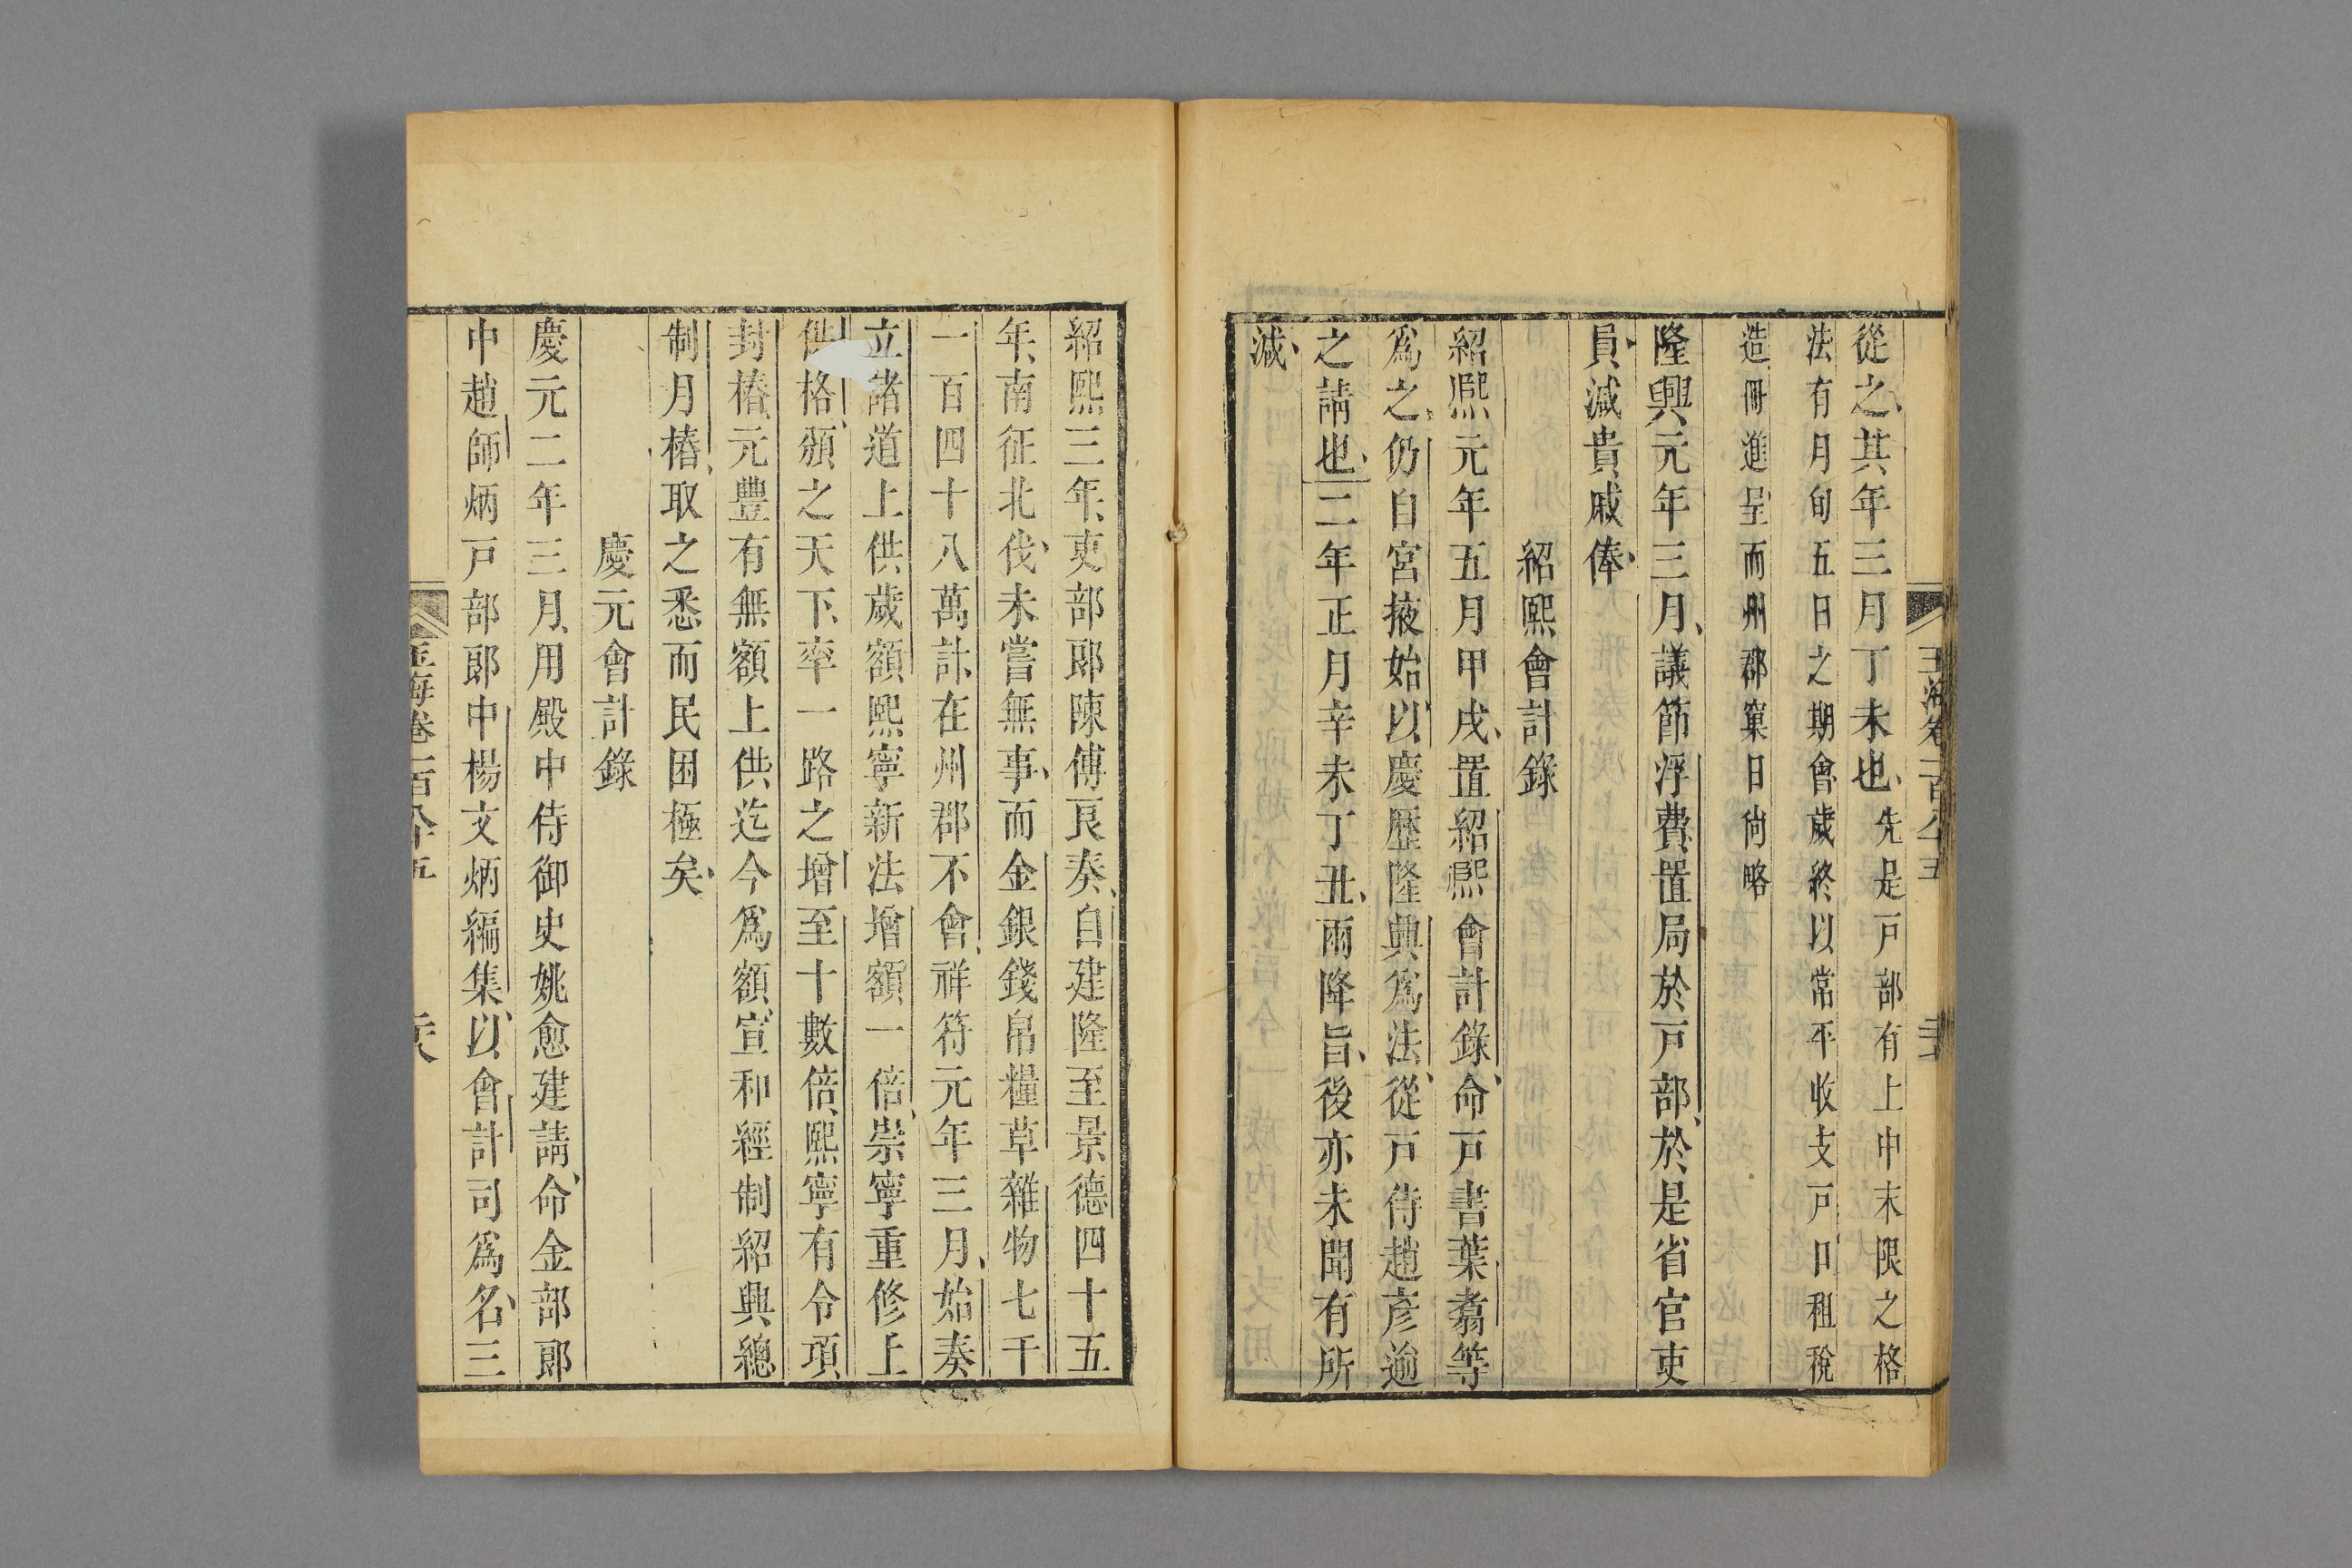 玉海卷一百八十五
從之其年三月丁未也先是戸部有上中末限之格
法有月旬五日之期會歲終以常平收支戸口租稅
造冊進呈而州郡窠日尙略
隆興元年三月議節浮費置局於戸部於是省官吏
員減貴戚俸
紹熙會計錄
紹熙元年五月甲戌置紹熙會計錄命戸書葉翥等
爲之仍自宮掖始以慶歷隆興爲法從戸侍趙彥逾
之請也二年正月辛未丁丑兩降旨後亦未聞有所
減
紹熙三年吏部郞陳傅良奏自建隆至景德四十五
年南征北伐未嘗無事而金銀錢帛糧草雜物七千
一百四十八萬計在州郡不會祥符元年三月始奏
立諸道上供歲額熙寧新法增額一倍崇寧重修上
供格頒之天下率一路之增至十數倍熙寧有令項
封樁元豐有無額上供迄今爲額宣和經制紹興總
制月樁取之悉而民困極矣
慶元會計錄
慶元二年三月用殿中侍御史姚愈建請命金部郞
中趙師炳戸部郞中楊文炳編集以會計司爲名三
玉海卷一百八十五